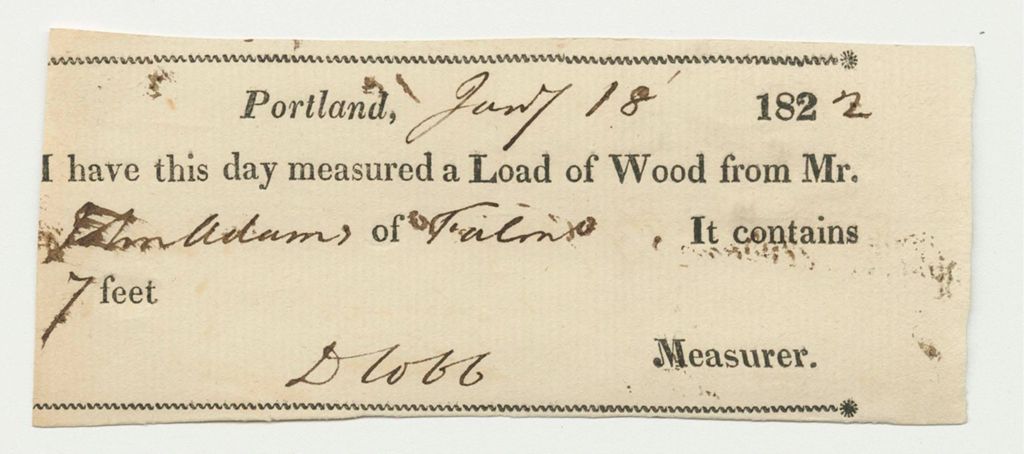 Portland, Jany 18 1822
I have this day measured a Load of Wood from Mr.
John Adams of Falmo . It contains
7 feet
D Cobb Measurer.